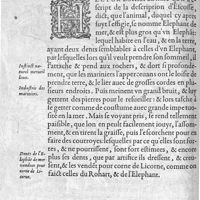 script de la description d'Escosse,
dict, que l'animal, duquel cy apres
sort l'effigie, se nomme Elephant de
mer, & est plus gros qu'vn Elephant:
lequel habite en l'eau, & en la terre,
ayant deux dents semblables à celles d'vn Elephant,
par lesquelles lors qu'il veult prendre son sommeil, il
s'attache & pend aux rochers, & dort si profonde-
ment, que les mariniers l'appercenant ont le loisir de
prendre terre, & le lier auec de grosses cordes en plu-
sieurs endroits. Puis meinent vn grand bruit, &
pour le resueiller: & lors
auec grande impetuosité
en la Mer. Mais se voyant pris, se rend
paisible, que l'on en peut facilement iouir, l'assom-
ment, & en tirent la graisse, puis l'escorchent pour en
faire des courroyes, lesquelles par ce que sont
& ne pourrissent, sont fort estimees, & encore
plus ses dents, que par artifice ils dressent,
cent, & les vendent pour corne de Licorne, comme on
faict celles du Rohart, & de l'Elephant.
Instinct na-
turel
Industrie des
mariniers.
Dents de l'E-
lephant de mer
vendues pour
corne de Li-
corne.